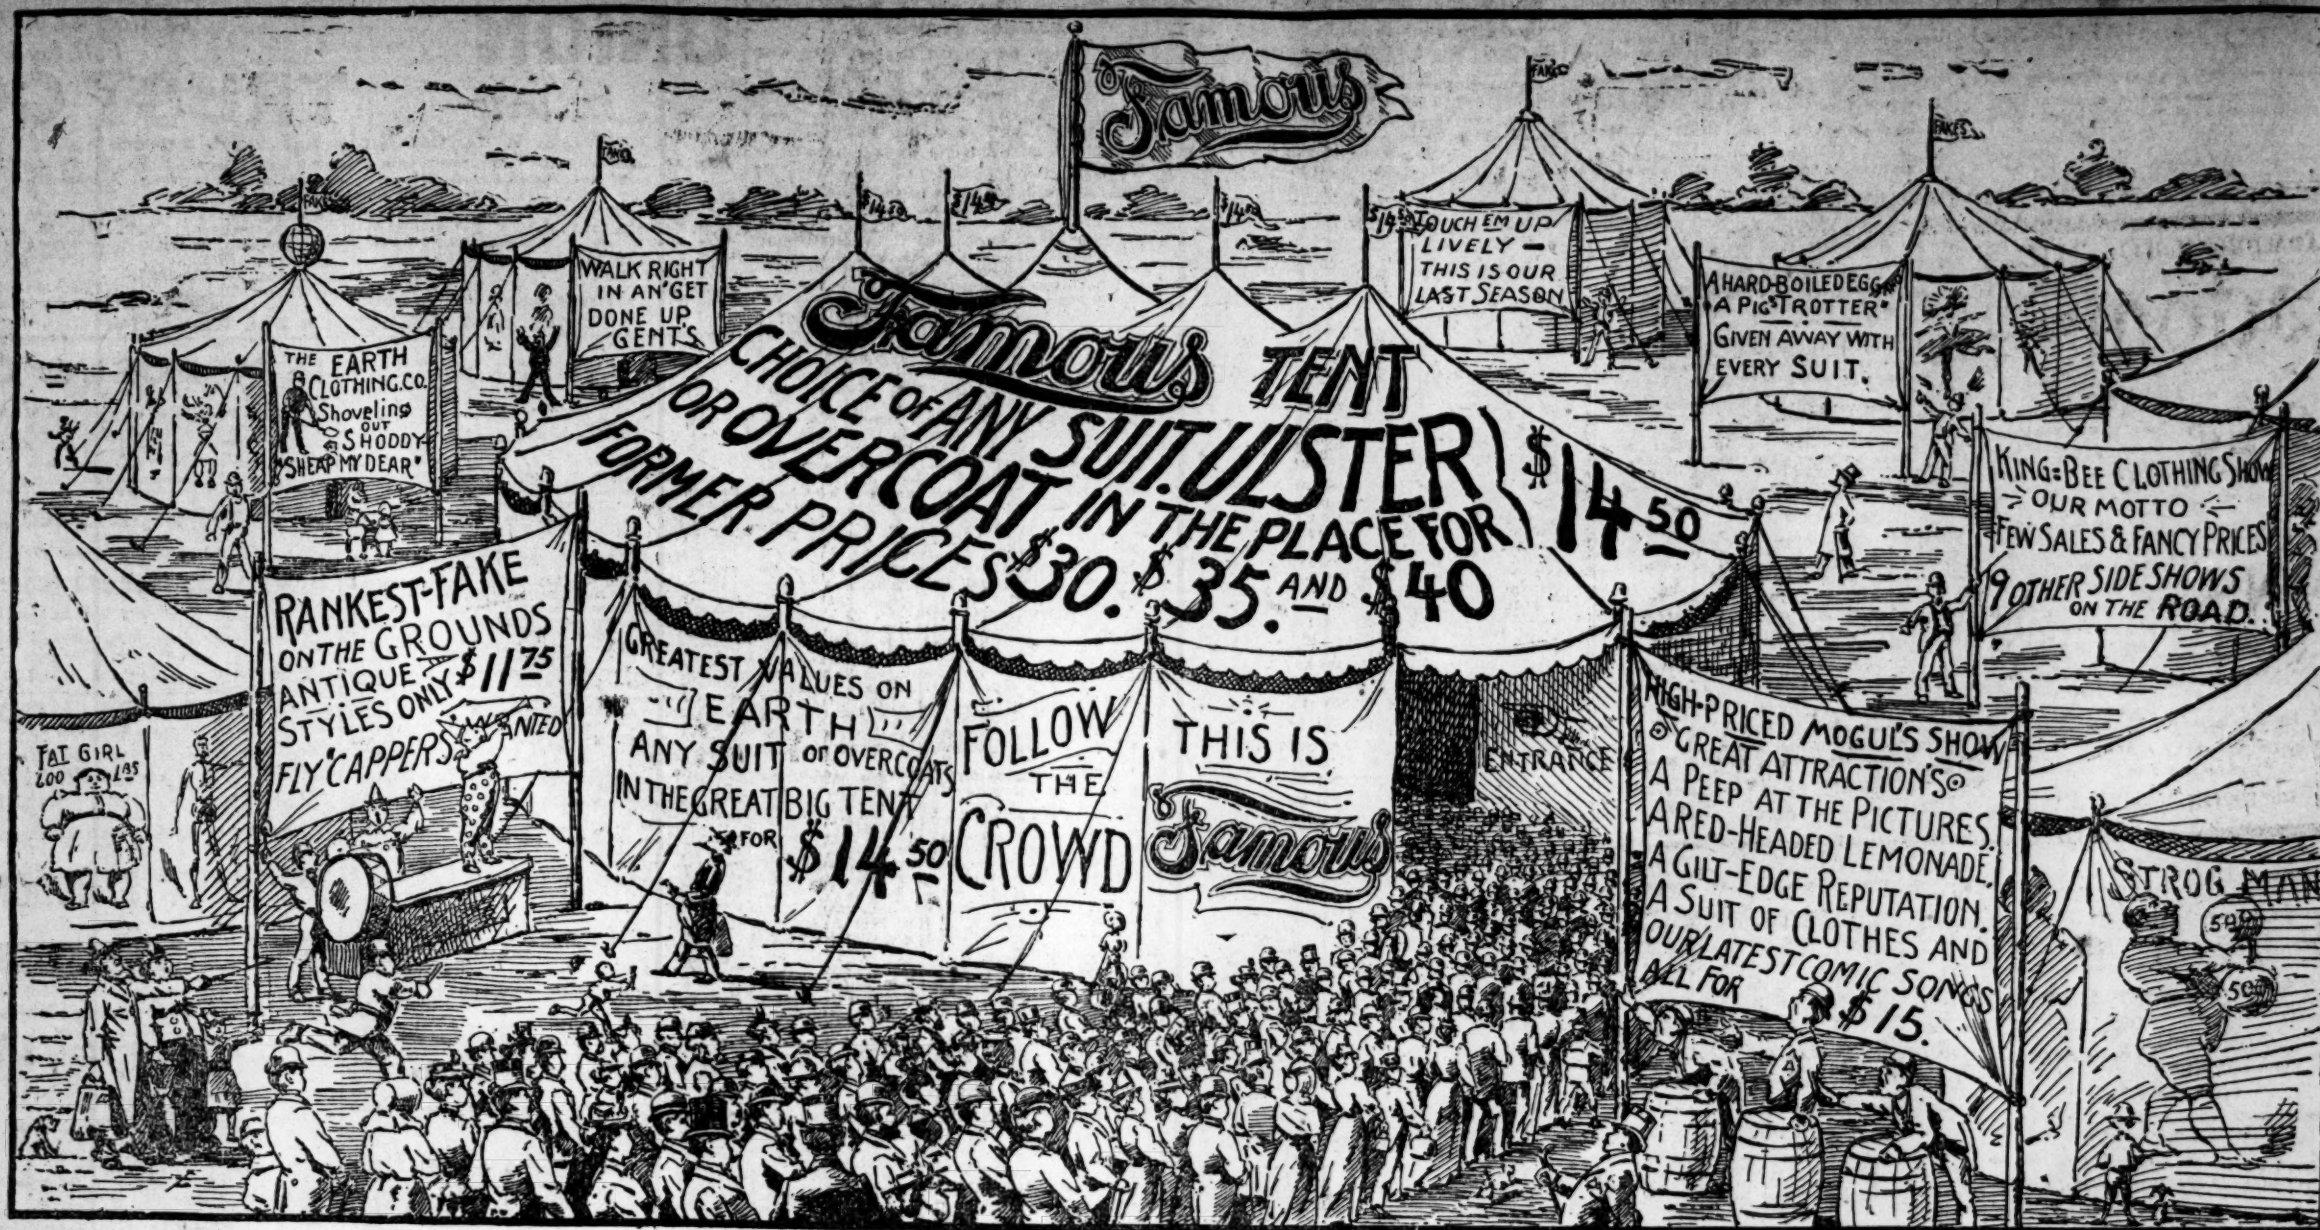 Famous
FAKE
FAKES
FAKE
FAKE
$14.50
$14.50
$14.50
$14.50
TOUCH EM UP
LIVELY —
THIS IS OUR
LAST SEASON
WALK RIGHT
IN AN' GET
DONE UP
GENT'S
A HARD-BOILED EGG AND
"A PIG'S TROTTER"
GIVEN AWAY WITH
EVERY SUIT.
THE EARTH
CLOTHING. CO.
Shoveling
OUT
SHODDY
"SHEAP MY DEAR"
Famous TENT
CHOICE OF ANY SUIT. ULSTER
OR OVERCOAT IN THE PLACE FOR
$14 50
FORMER PRICES $30. $35. AND $40
KING=BEE CLOTHING SHOW
OUR MOTTO
FEW SALES & FANCY PRICES
9 OTHER SIDE SHOWS
ON THE ROAD.
RANKEST-FAKE
ON THE GROUNDS
ANTIQUE
STYLES ONLY $11 75
FLY "CAPPERS" WANTED
FAT GIRL
200 LBS
GREATEST VALUES ON
EARTH
ANY SUIT or OVERCOATS
IN THE GREAT BIG TENT
FOR $14 50
FOLLOW
THE
CROWD
THIS IS
Famous
ENTRANCE
HIGH-PRICED MOGUL'S SHOW
GREAT ATTRACTION'S
A PEEP AT THE PICTURES.
A RED-HEADED LEMONADE.
A GILT-EDGE REPUTATION.
A SUIT OF CLOTHES AND
OUR LATEST COMIC SONGS
ALL FOR $15.
STROG MAN
500
500